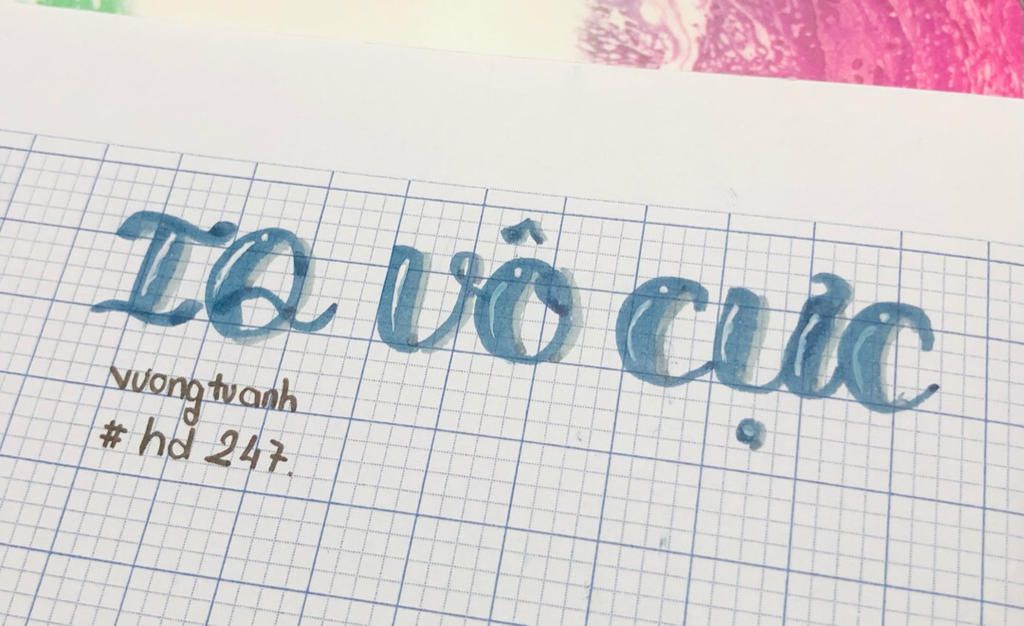 IQ vô cực
vuongtuanh
# hd 247.